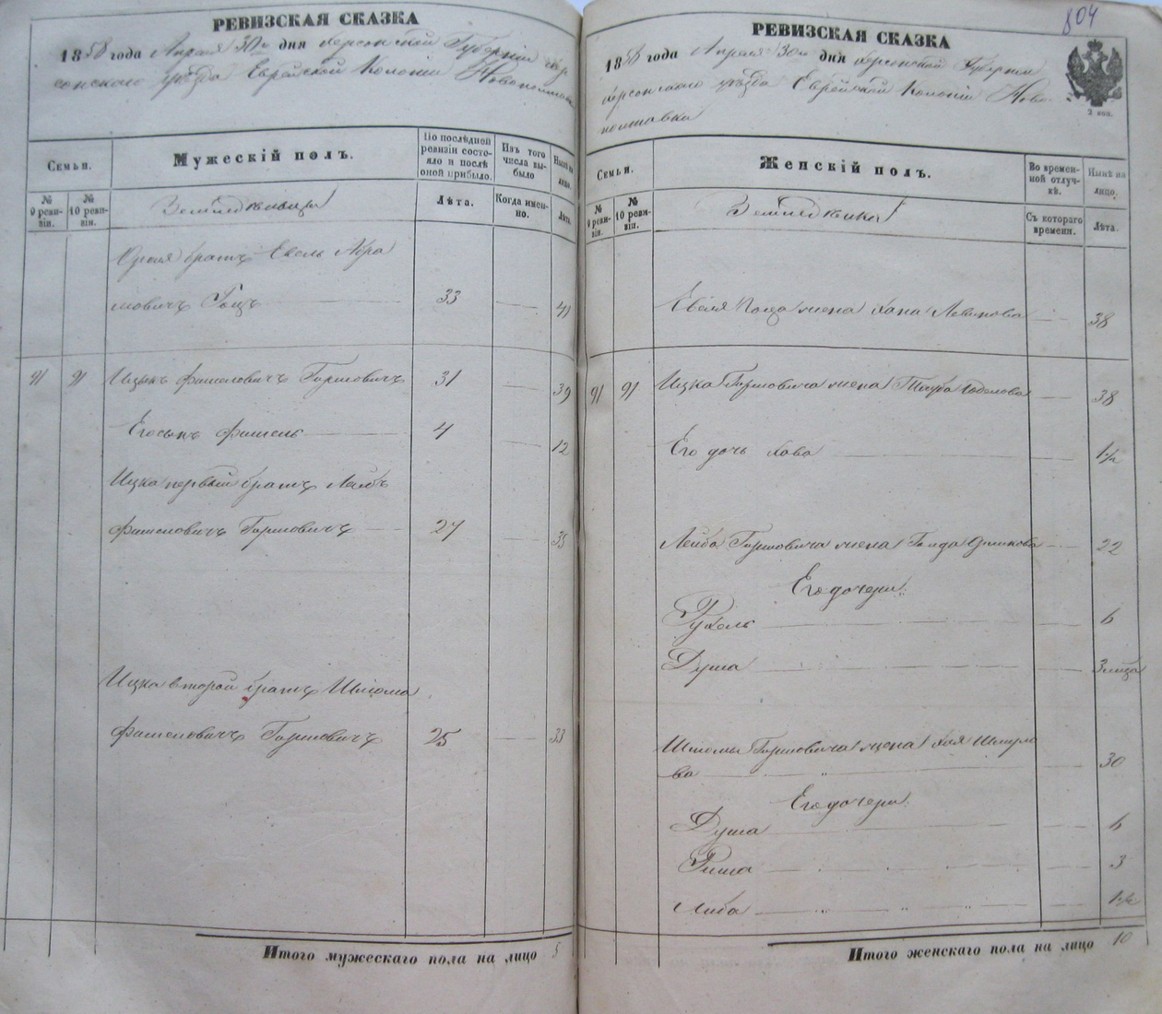 РЕВИЗСКАЯ СКАЗКА
1858 года Апреля 30го дня Херсонской Губернии Хер
сонского уезда Еврейской Колонии Новополтавки
Семьи.
Мужескій полъ.
По послѣдней ревизіи состояло и послѣ оной прибыло.
Изъ того числа выбыло
Нынѣ на лицо.
№ 9 ревизіи.
№ 10 ревизіи.
Земледельцы
Лѣта.
Когда именно.
Лѣта.
братъ Евель Абра
мовичъ 33 41
91 91 Ицекъ Фишелевичъ Гершовичъ 31 39
Его сынъ Фишель 4 12
Ицка первый братъ Лейбъ
Фишелевичъ Гершовичъ 27 35
Ицка второй братъ Шлёма
Фишелевичъ Гершовичъ 25 33
Итого мужескаго пола на лицо 5
804
РЕВИЗСКАЯ СКАЗКА
1858 года Апреля 30го дня Херсонской Губернии
Херсонского уезда Еврейской Колонии Ново
полтавки
2 коп.
Семьи.
Женскій полъ.
Во временной отлучкѣ.
Нынѣ на лицо.
№ 9 ревизіи.
№ 10 ревизіи.
Земледелки
Съ котораго времени.
Лѣта.
Евеля жена Хана Левикова 38
91 91 Ицка Гершовича жена Тауба 38
Его дочь Хава 1½
Лейба Гершовича жена Голда 22
Его дочери
Рухель 6
Душа 3 месяца
Шлёмы Гершовича жена Хая Шмуло
ва 30
Его дочери
Душа 6
Риша 3
Либа 1½
Итого женскаго пола на лицо 10